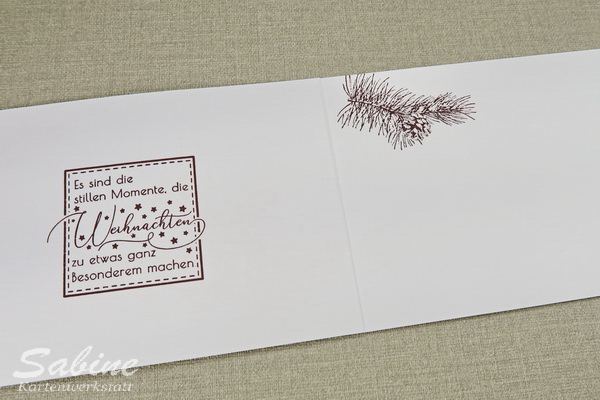 Es sind die
stillen Momente, die
Weihnachten
zu etwas ganz
Besonderem machen.
Sabine
Kartenwerkstatt